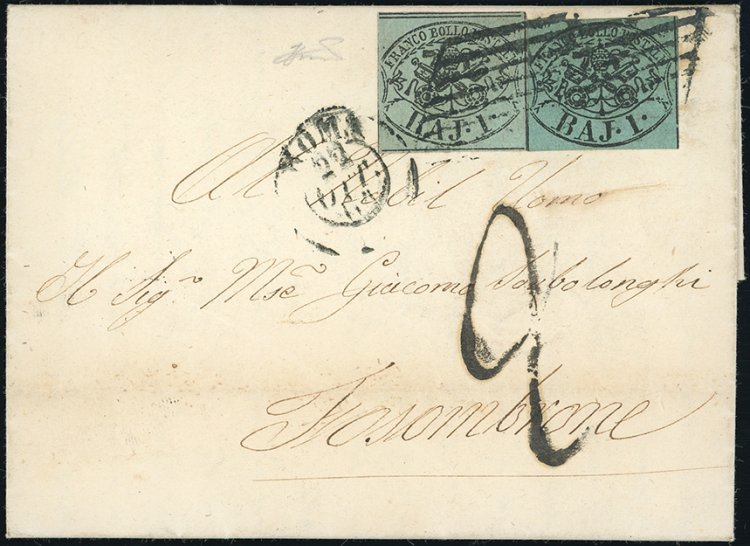 FRANCO BOLLO POSTALE
BAJ. 1.
FRANCO BOLLO POSTALE
BAJ. 1.
ROMA
22
OTT.
Al Nobil Uomo
Il Sigʳ Mseˢ Giacomo Sorbolonghi
Fosombrone
2